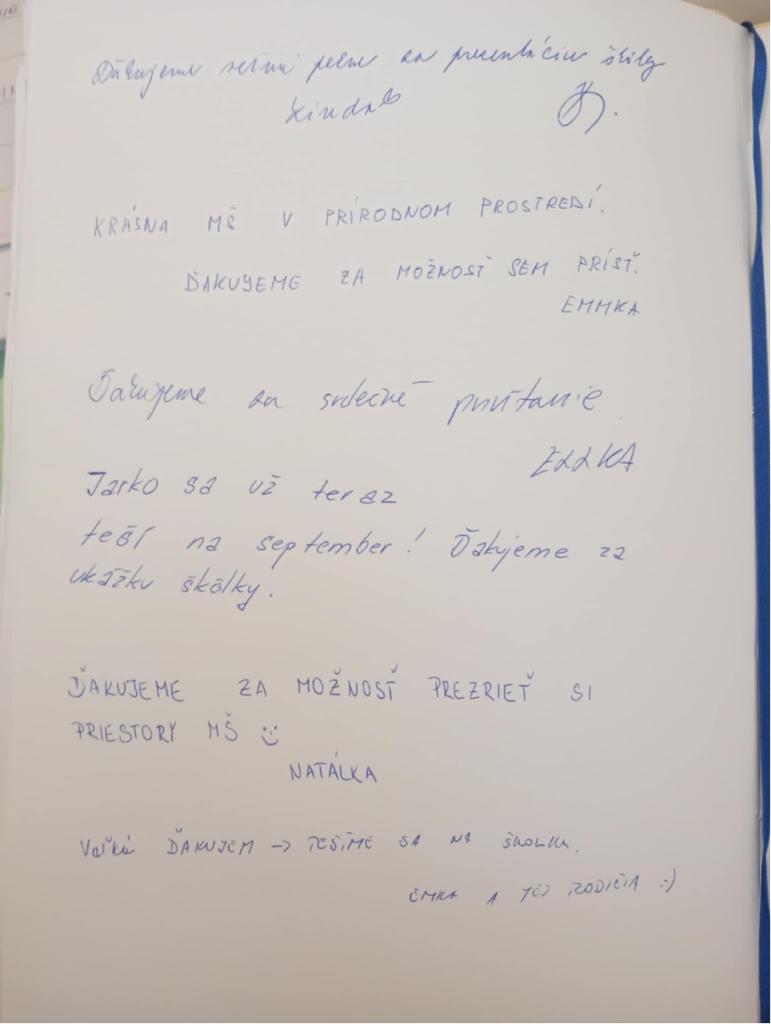 Ďakujeme veľmi pekne za prezentáciu školy
KRÁSNA MŠ V PRÍRODNOM PROSTREDÍ.
ĎAKUJEME ZA MOŽNOSŤ SEM PRÍSŤ.
EMMKA
Ďakujeme za srdečné privítanie
ELLKA
Jarko sa už teraz
teší na september! Ďakujeme za
ukážku škôlky.
ĎAKUJEME ZA MOŽNOSŤ PREZRIEŤ SI
PRIESTORY MŠ
NATÁLKA
Veľké ĎAKUJEM → TEŠÍME SA NA ŠKOLKU.
EMKA A JEJ RODIČIA :-)